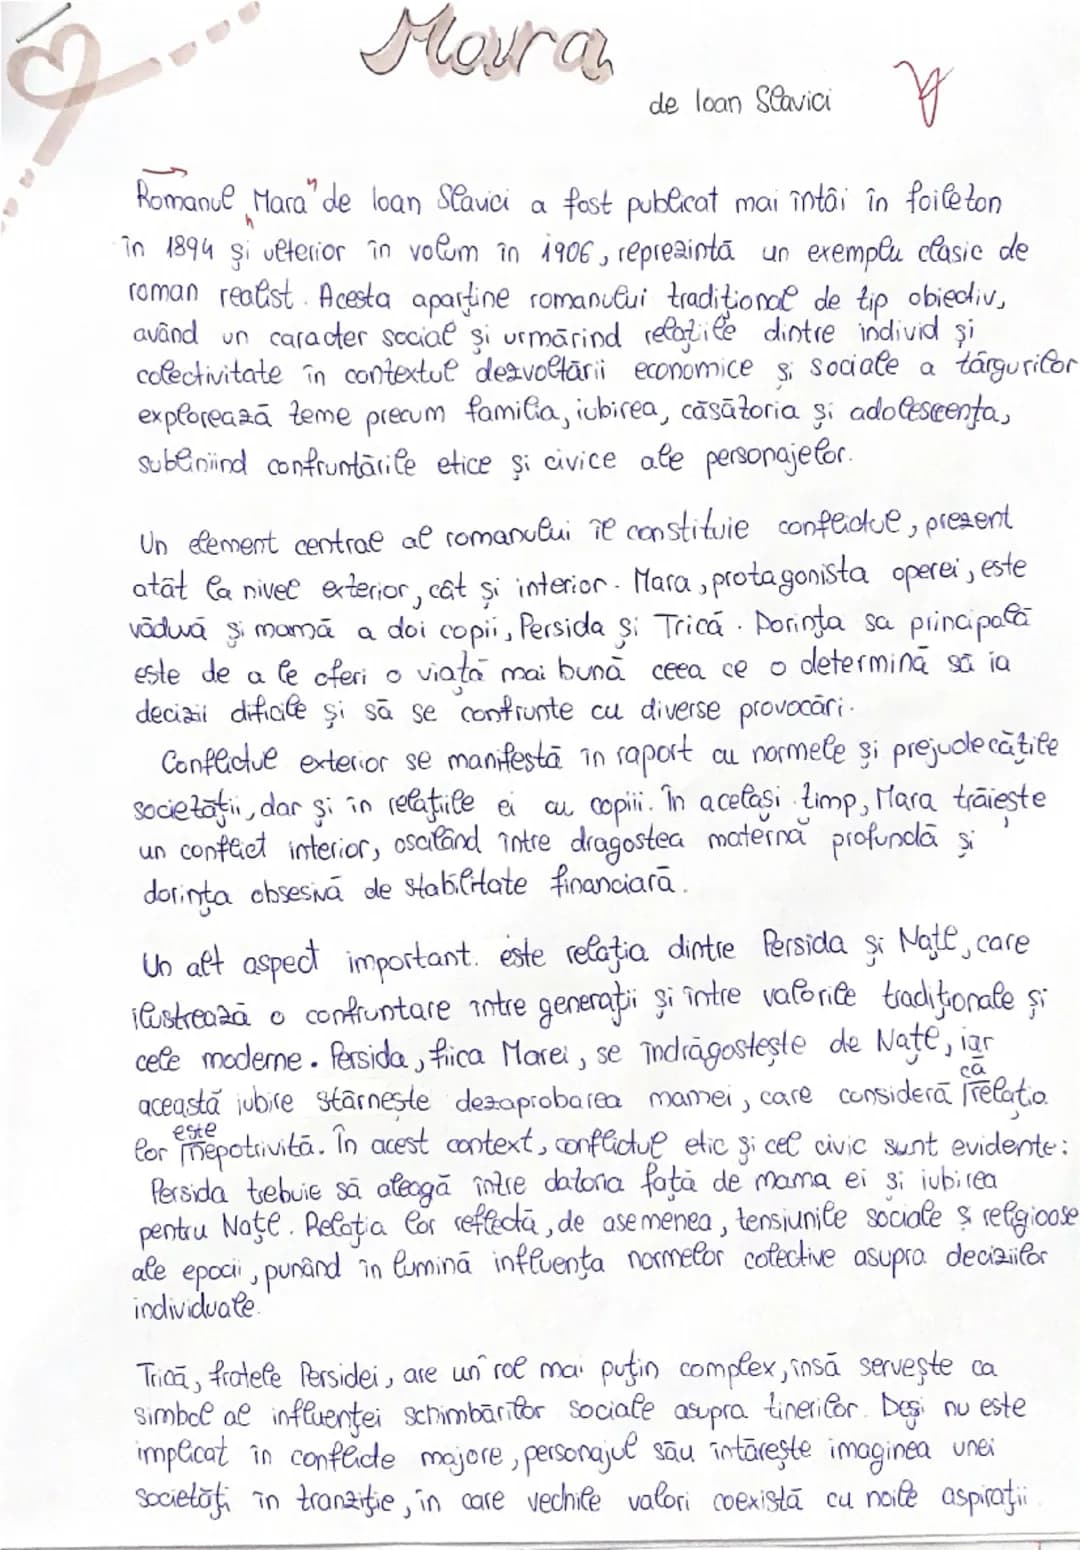 Mara
de Ioan Slavici
Romanul „Mara" de Ioan Slavici a fost publicat mai întâi în foileton
în 1894 și ulterior în volum în 1906, reprezintă un exemplu clasic de
roman realist. Acesta aparține romanului tradițional de tip obiectiv,
având un caracter social și urmărind relațiile dintre individ și
colectivitate în contextul dezvoltării economice și sociale a târgurilor
explorează teme precum familia, iubirea, căsătoria și adolescența,
subliniind confruntările etice și civice ale personajelor.
Un element central al romanului îl constituie conflictul, prezent
atât la nivel exterior, cât și interior. Mara, protagonista operei, este
văduvă și mamă a doi copii, Persida și Trică. Dorința sa principală
este de a le oferi o viață mai bună ceea ce o determină să ia
decizii dificile și să se confrunte cu diverse provocări.
Conflictul exterior se manifestă în raport cu normele și prejudecățile
societății, dar și în relațiile ei cu copiii. În același timp, Mara trăiește
un conflict interior, oscilând între dragostea maternă profundă și
dorința obsesivă de stabilitate financiară.
Un alt aspect important. este relația dintre Persida și Națl, care
ilustrează o confruntare între generații și între valorile tradiționale și
cele moderne. Persida, fiica Marei, se îndrăgostește de Națl, iar
această iubire stârnește dezaprobarea mamei, care consideră că relația
lor este nepotrivită. În acest context, conflictul etic și cel civic sunt evidente:
Persida trebuie să aleagă între datoria față de mama ei și iubirea
pentru Națl. Relația lor reflectă, de asemenea, tensiunile sociale și religioase
ale epocii, punând în lumină influența normelor colective asupra deciziilor
individuale.
Trică, fratele Persidei, are un rol mai puțin complex, însă servește ca
simbol al influenței schimbărilor sociale asupra tinerilor. Deși nu este
implicat în conflicte majore, personajul său întărește imaginea unei
societăți în tranziție, în care vechile valori coexistă cu noile aspirații